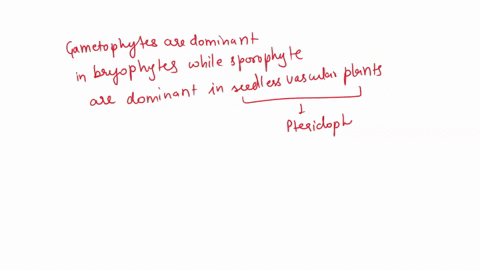 Gametophytes are dominant
in bryophytes while sporophyte
are dominant in seedless vascular plants
Pteridoph